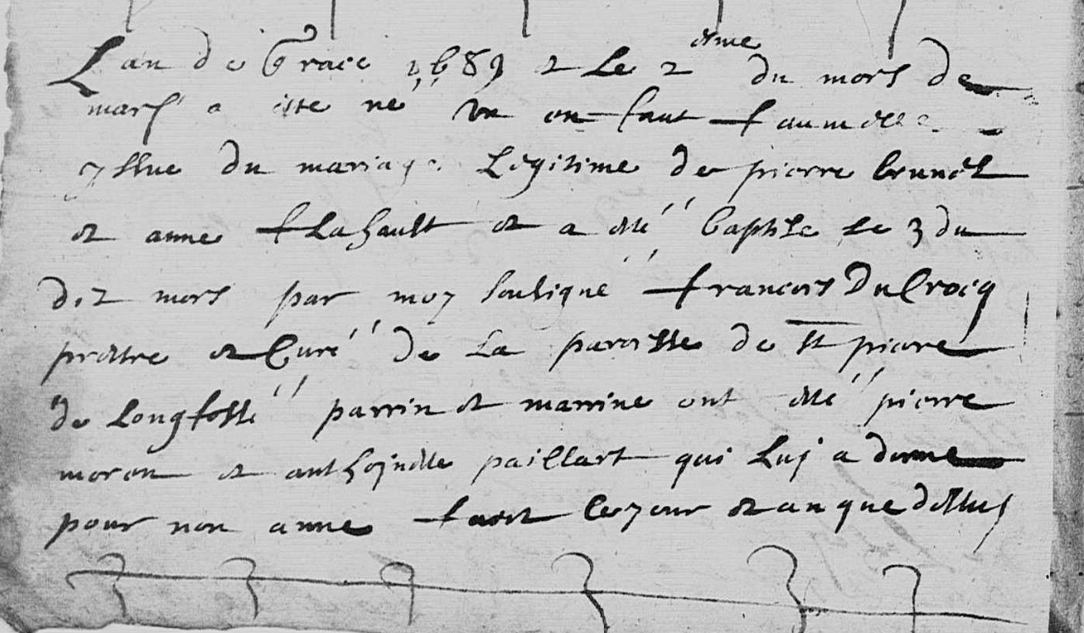 Lan de Grace 1689 et Le 2 eme du mois de
mars a este né un enfant faumelle
yssue du mariage Legitime de pierre brunet
et anne flahault et a esté baptise le 3 du
dit mois par moy soubsigné francois DuCrocq
prestre et Curé de La paroisse de st pierre
de Longfossé parrin et marrine ont esté pierre
moron et anthoinette paillart qui Luy a donne
pour non anne faict les jour et an que dessus